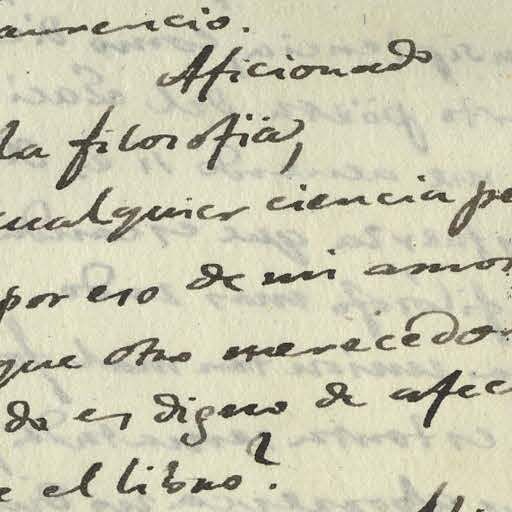 aurencio.
Aficionado
la filosofia,
cualquier ciencia pe
por eso de mi amor
que otro merecedor
do es digno de afec
e el libro?